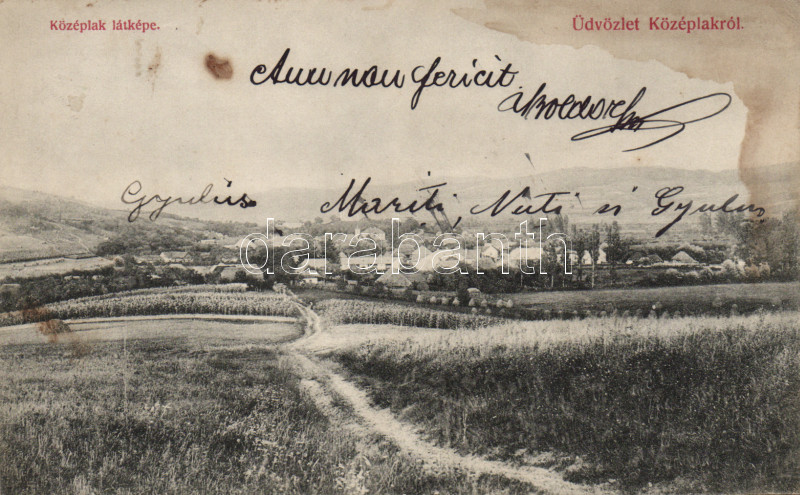 Középlak látképe.
Üdvözlet Középlakról.
Anu nou fericit
Gyulus
Mariti, Nuti si Gyulus
darabanth